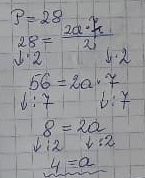 P = 28
28 = 2a·7/2
↓:2 ↓:2
56 = 2a·7
↓:7 ↓:7
8 = 2a
↓:2 ↓:2
4 = a